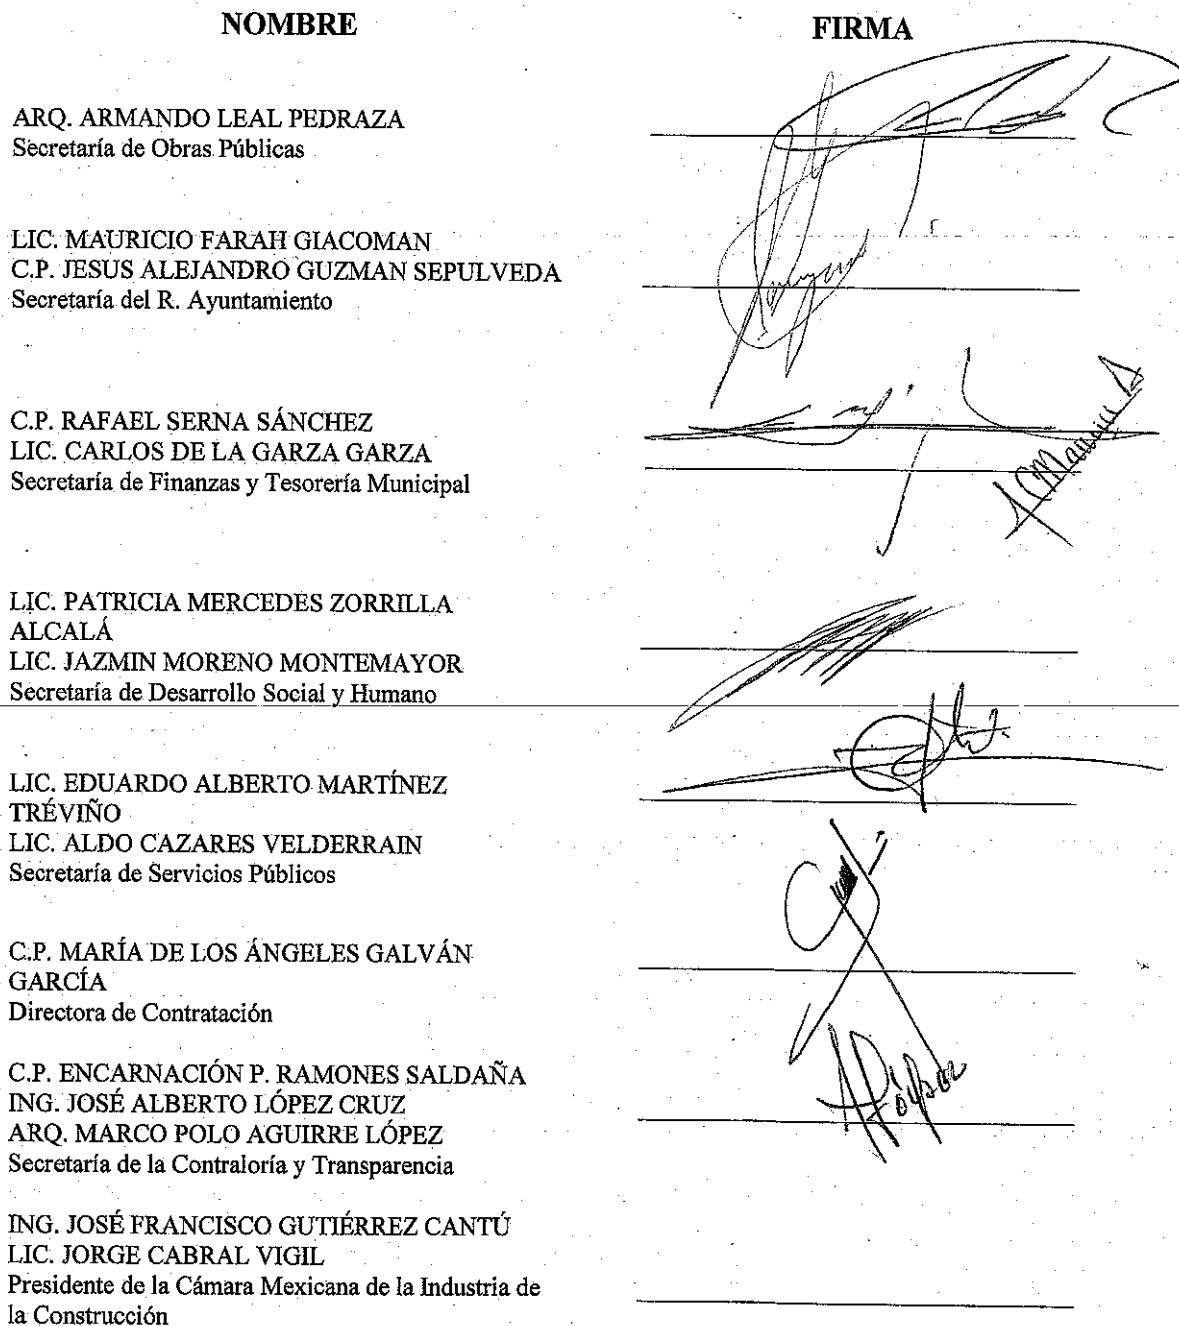 NOMBRE
FIRMA
ARQ. ARMANDO LEAL PEDRAZA
Secretaría de Obras Públicas
LIC. MAURICIO FARAH GIACOMAN
C.P. JESUS ALEJANDRO GUZMAN SEPULVEDA
Secretaría del R. Ayuntamiento
C.P. RAFAEL SERNA SÁNCHEZ
LIC. CARLOS DE LA GARZA GARZA
Secretaría de Finanzas y Tesorería Municipal
LIC. PATRICIA MERCEDES ZORRILLA
ALCALÁ
LIC. JAZMIN MORENO MONTEMAYOR
Secretaría de Desarrollo Social y Humano
LIC. EDUARDO ALBERTO MARTÍNEZ
TRÉVIÑO
LIC. ALDO CAZARES VELDERRAIN
Secretaría de Servicios Públicos
C.P. MARÍA DE LOS ÁNGELES GALVÁN
GARCÍA
Directora de Contratación
C.P. ENCARNACIÓN P. RAMONES SALDAÑA
ING. JOSÉ ALBERTO LÓPEZ CRUZ
ARQ. MARCO POLO AGUIRRE LÓPEZ
Secretaría de la Contraloría y Transparencia
ING. JOSÉ FRANCISCO GUTIÉRREZ CANTÚ
LIC. JORGE CABRAL VIGIL
Presidente de la Cámara Mexicana de la Industria de
la Construcción